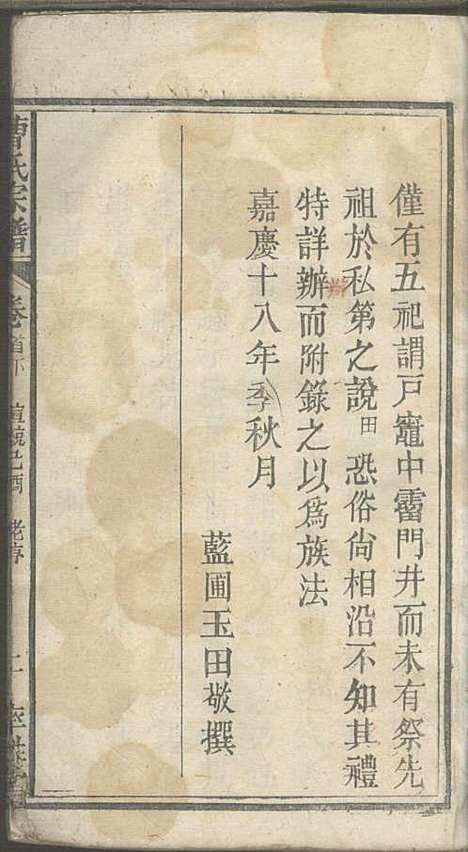 僅有五祀謂戸竈中霤門井而未有祭先
祖於私第之說田恐俗尙相沿不知其禮
特詳辦而附錄之以爲族法
嘉慶十八年季秋月
藍圃玉田敬撰
曹氏宗譜 卷首下